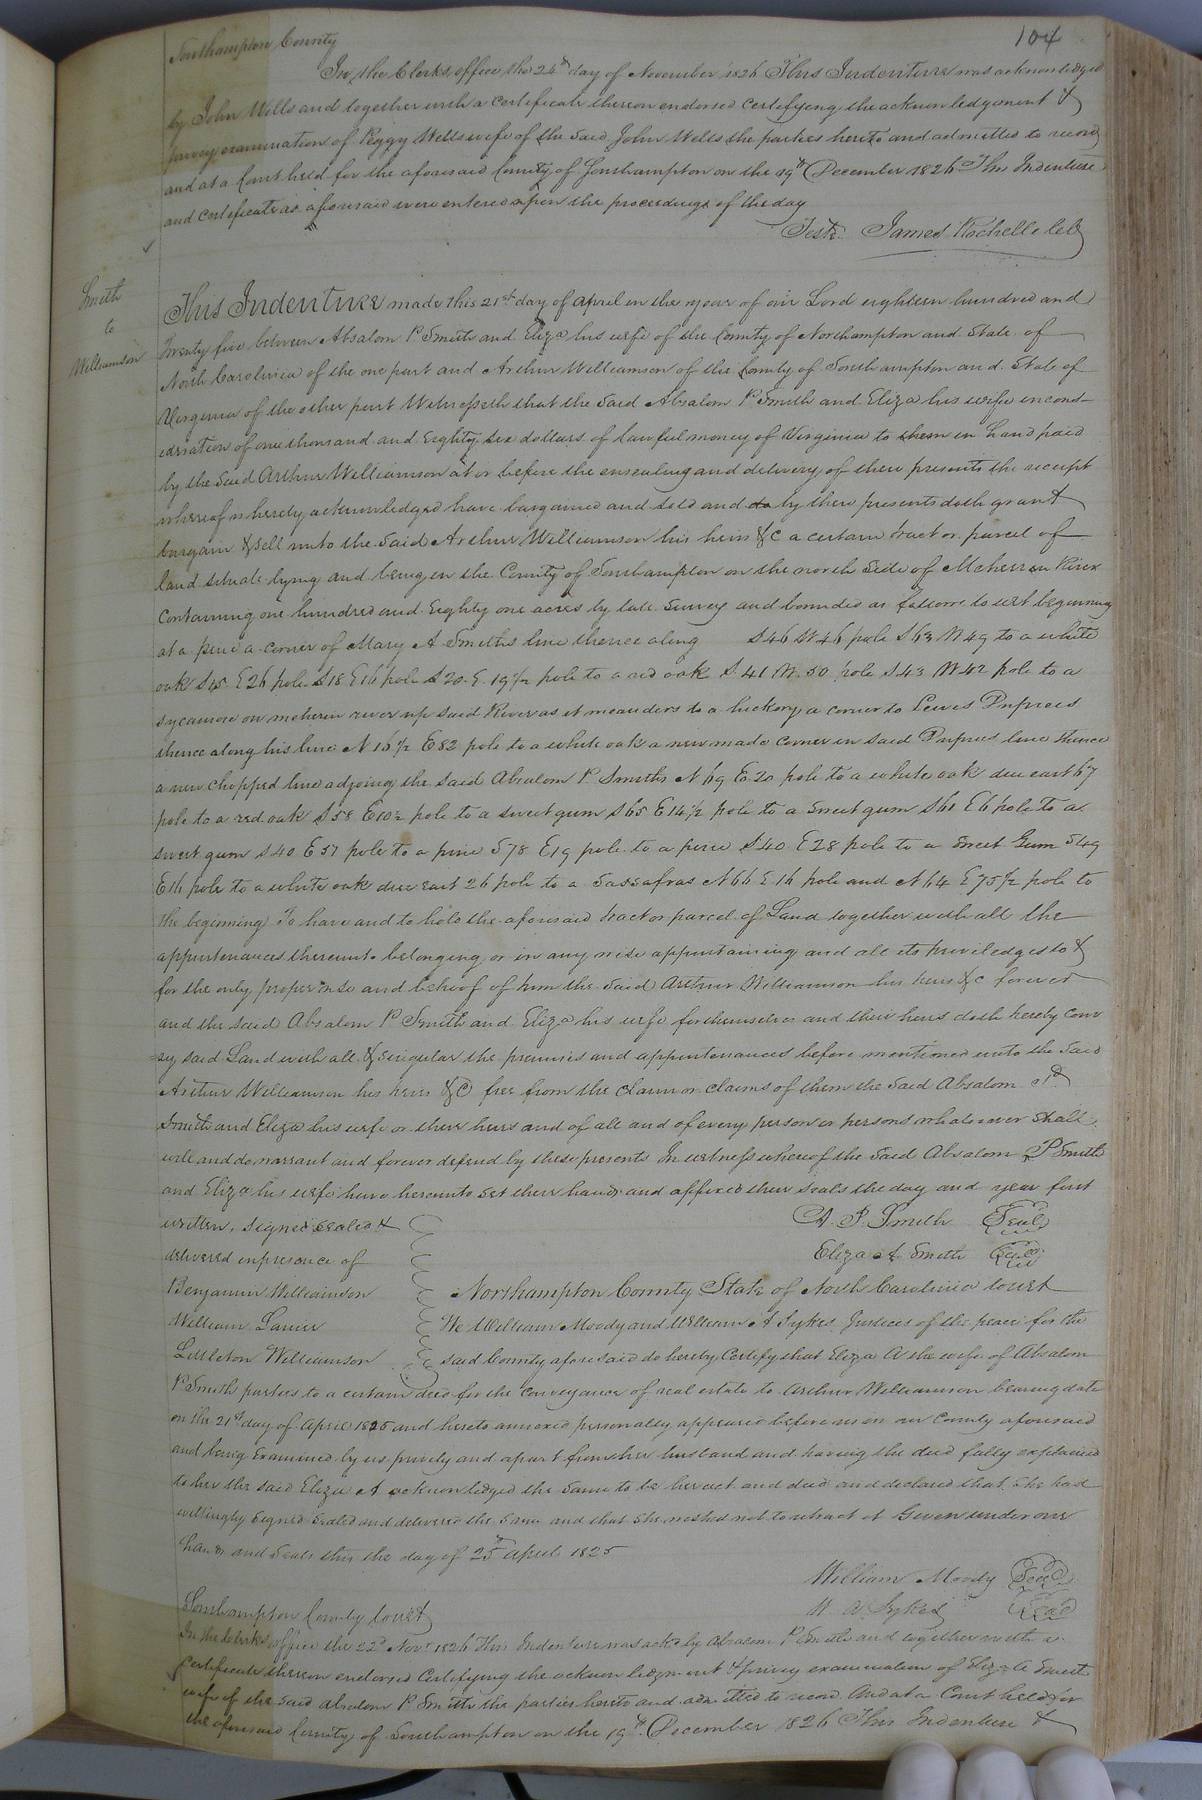 104
Southampton County
In the Clerks office the 24th day of November 1826 This Indenture was acknowledged
by John Wells and together with a certificate thereon endorsed certifying the acknowledgment &
privey examination of Peggy Wells wife of the Said John Wells the parties hereto and admitted to record
and at a Court held for the aforesaid County of Southampton on the 19th December 1826 This Indenture
and certificate as aforesaid were entered upon the proceedings of the day
Teste. James Rochelle Clk
Smith
to
Williamson
This Indenture made this 21st day of April in the year of our Lord eighteen hundred and
Twenty five between Absalom P Smith and Eliza his wife of the County of Northampton and State of
North Carolinia of the one part and Arthur Williamson of the County of Southampton and State of
Virginia of the other part Witnesseth that the Said Absalom P Smith and Eliza his wife in consi-
deration of one thousand and Eighty six dollars of lawful money of Virginia to them in hand paid
by the Said Arthur Williamson at or before the ensealing and delivery of these presents the receipt
whereof is hereby acknowledged have bargained and sold and do by these presents doth grant
bargain & sell unto the Said Arthur Williamson his heirs &c a certain tract or parcel of
land situate lying and being in the County of Southampton on the north Side of Meherrin River
Containing one hundred and Eighty one acres by late Survey and bounded as follows to wit beginning
at a pine a corner of Mary A Smiths line thence along S46 W46 pole S63 W49 to a white
oak S45 E26 pole S18 E16 pole S20 E 19½ pole to a red oak S 41 W. 50 pole S43 W42 pole to a
sycamore on meherin river up said River as it meanders to a hickory a corner to Lewis Puprees
thence along his line N 16½ E82 pole to a white oak a new made corner in said Puprees line thence
a new chopped line adjoing the said Absalom P Smiths N 69 E 20 pole to a white oak due east 67
pole to a red oak S58 E10½ pole to a sweet gum S65 E14½ pole to a Sweet gum S61 E6 pole to a
sweet gum S40 E37 pole to a pine S78 E19 pole to a pine S40 E28 pole to a Sweet Gum S49
E16 pole to a white oak due east 26 pole to a Sassafras N66 E 16 pole and N64 E75½ pole to
the beginning To have and to hold the aforesaid tract or parcel of Land together with all the
appurtenances thereunto belonging or in any wise appertaining and all its priviledges to &
for the only proper use and behoof of him the Said Arthur Williamson his heirs &c forever
and the said Absalom P Smith and Eliza his wife for themselves and their heirs doth hereby conv
=ey said Land with all & singular the premises and appurtenances before mentioned unto the Said
Arthur Williamson his heirs &c free from the claim or claims of them the Said Absalom P
Smith and Eliza his wife or their heirs and of all and of every person or persons whatsoever Shall
will and do warrant and forever defend by these presents In witness whereof the Said Absalom P Smith
and Eliza his wife have hereunto Set their hands and affixed their Seals the day and year first
written. Signed Sealed &
delivered in presence of
Benjamin Williamson
William Lanier
Littleton Williamson
A. P. Smith Seal
Eliza A Smith Seal
Northampton County State of North Carolinia to wit
We William Moody and William A Sykes Justices of the peace for the
said County aforesaid do hereby Certify that Eliza A the wife of Absalom
P Smith parties to a certain deed for the conveyance of real estate to Arthur Williamson bearing date
on the 21st day of April 1825 and hereto annexed personally appeared before us in our County aforesaid
and being Examined by us privily and apart from her husband and having the deed fully explained
to her the said Eliza A acknowledged the Same to be her act and deed and declared that She had
willingly Signed Sealed and delivered the Same and that She wished not to retract it Given under our
hands and Seals this the day of 25th April 1825
William Moody Seal
W A Sykes Seal
Southampton County Court
In the Clerks office the 22d Novr 1826 This Indenture was ackd by Absalom P Smith and together with a
Certificate thereon endorsed Certifying the acknowledgment & privey examination of Eliza A Smith
wife of the Said Absalom P Smith the parties hereto and admitted to record And at a Court held for
the aforesaid County of Southampton on the 19th December 1826 This Indenture &